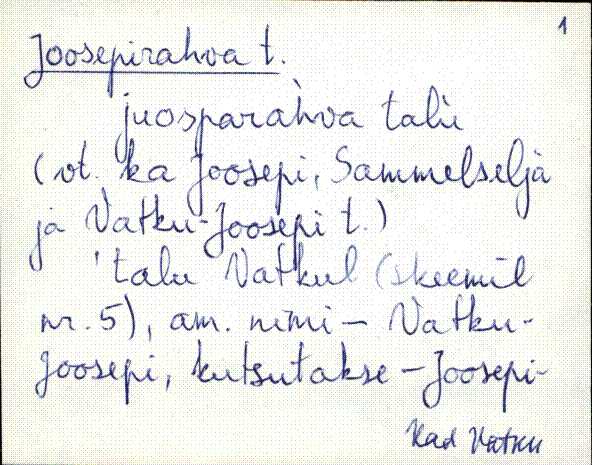 1
Joosepirahva t.
juosparàhva talù
(vt. ka Joosepi, Sammelselja
ja Vatku-Joosepi t.)
'talu Vatkul (skeemil
nr. 5), am. nimi – Vatku-
Joosepi, kutsutakse – Joosepi-
Kad Vatku